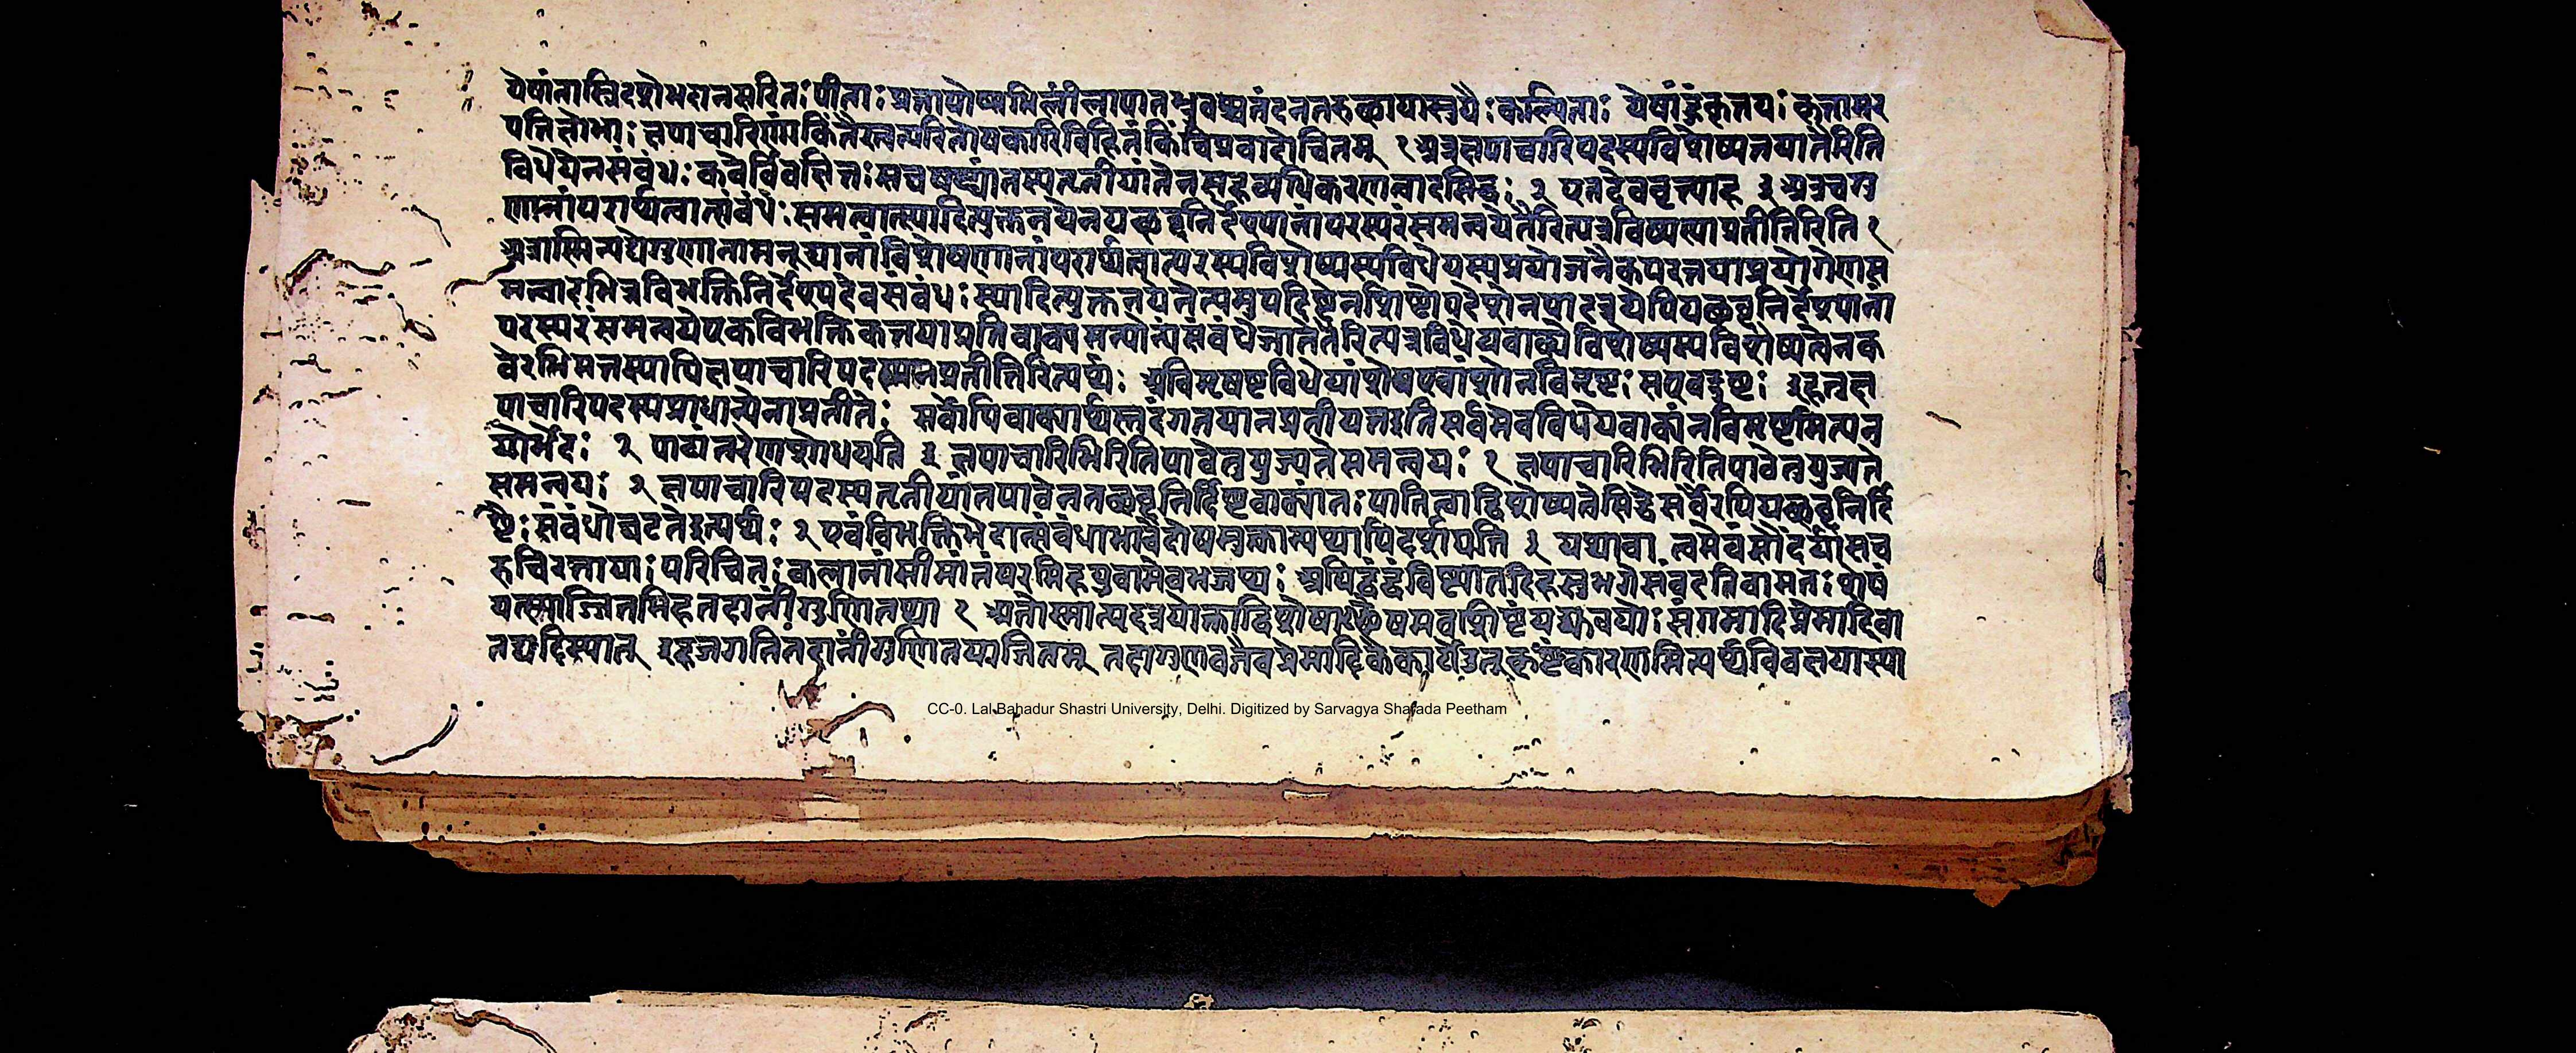 येषांतास्त्रिदशेभदानसरितः पीताः प्रतापोष्मभिर्लीलापानभुवश्चनंदनतरुछायासुयैः कल्पिताः येषांहुंकृतयः कृतामर
पतिक्षोभाः क्षपाचारिणां किंतैस्त्वत्परितोषकारिविहितंकिंचित्प्रवादोचितम् १ अत्रक्षपाचारिपदस्यविशेष्यतयातैरिति
विधेयेनसंबंधः कवेर्विवक्षितः सचषष्ठ्यंतस्यतृतीयांतेनसहव्यधिकरणत्वादसिद्धः २ एतदेववृत्त्याह ३ अत्रचगु
णानांपरार्थत्वात्संबंधः समत्वात्स्यादित्युक्तनयेनयछब्दनिर्देश्यानांपरस्परंसमन्वयेतैरित्यत्रविशेष्यस्याप्रतीतिरिति १
अत्रास्मिन्पद्येगुणानामनूद्यानांविशेषणानांपरार्थत्वात्परस्यविशेष्यस्यविधेयस्यप्रयोजनैकपरतयाप्रयोगेणस
मत्वादभिन्नविभक्तिनिर्देश्यदेवसंबंधः स्यादित्युक्तनयेनेत्थमुपदिष्टेनशिष्टोपदेशेनपादत्रयेपियछब्दनिर्देश्यानां
परस्परंसमन्वयेएकविभक्तिकतयाप्रतिवाक्यमन्योन्यंसंबंधेजातेतैरित्यत्रविधेयवाक्येविशेष्यस्यविशेष्यत्वेनक
वेरभिमतस्यापिक्षपाचारिपदस्याप्रतीतिरित्यर्थः अविमृष्टविधेयांशेएवांशोनविमृष्टः सएवदुष्टः इहतुक्ष
पाचारिपदस्यप्राधान्येनाप्रतीतेः सर्वोपिवाक्यार्थस्तदंगतयानप्रतीयतइतिसर्वमेवविधेयवाक्यंनविमृष्टमित्यन
योर्भेदः २ पाठांतरेणशोधयति ३ क्षपाचारिभिरितिपाठेतुयुज्यतेसमन्वयः १ क्षपाचारिभिरितिपाठेतुयुज्यते
समन्वयः २ क्षपाचारिपदस्यतृतीयांतपाठेनतछब्दनिर्दिष्टवाक्यांतःपातित्वाद्विशेष्यत्वेसिद्धेसर्वैरपियछब्दनिर्दि
ष्टैः संबंधोघटतेइत्यर्थः २ एवंविभक्तिभेदात्संबंधाभावेदोषमुक्त्वान्यथापिदर्शयति ३ यथावा त्वमेवंसौंदर्यासच
रुचिरतायाः परिचितः कलानांसीमांतंपरमिहयुवामेवभजथः अपिद्वंद्वंदिष्ट्यातदिहसुभगेसंवदतिवामतः शेषं
यत्स्याज्जितमिहतदानींगुणितया १ अतोस्मात्पदत्रयोक्ताद्विशेषाछेषमवशिष्टंयद्युवयोः संगमादिप्रेमादिवा
तद्यदिस्यात् इहजगतितदानींगुणितयाजितम् तदागुणवत्तैवप्रेमादिकेकार्येउत्कृष्टंकारणमित्यर्थविवक्षयास्या
CC-0. Lal Bahadur Shastri University, Delhi. Digitized by Sarvagya Sharada Peetham